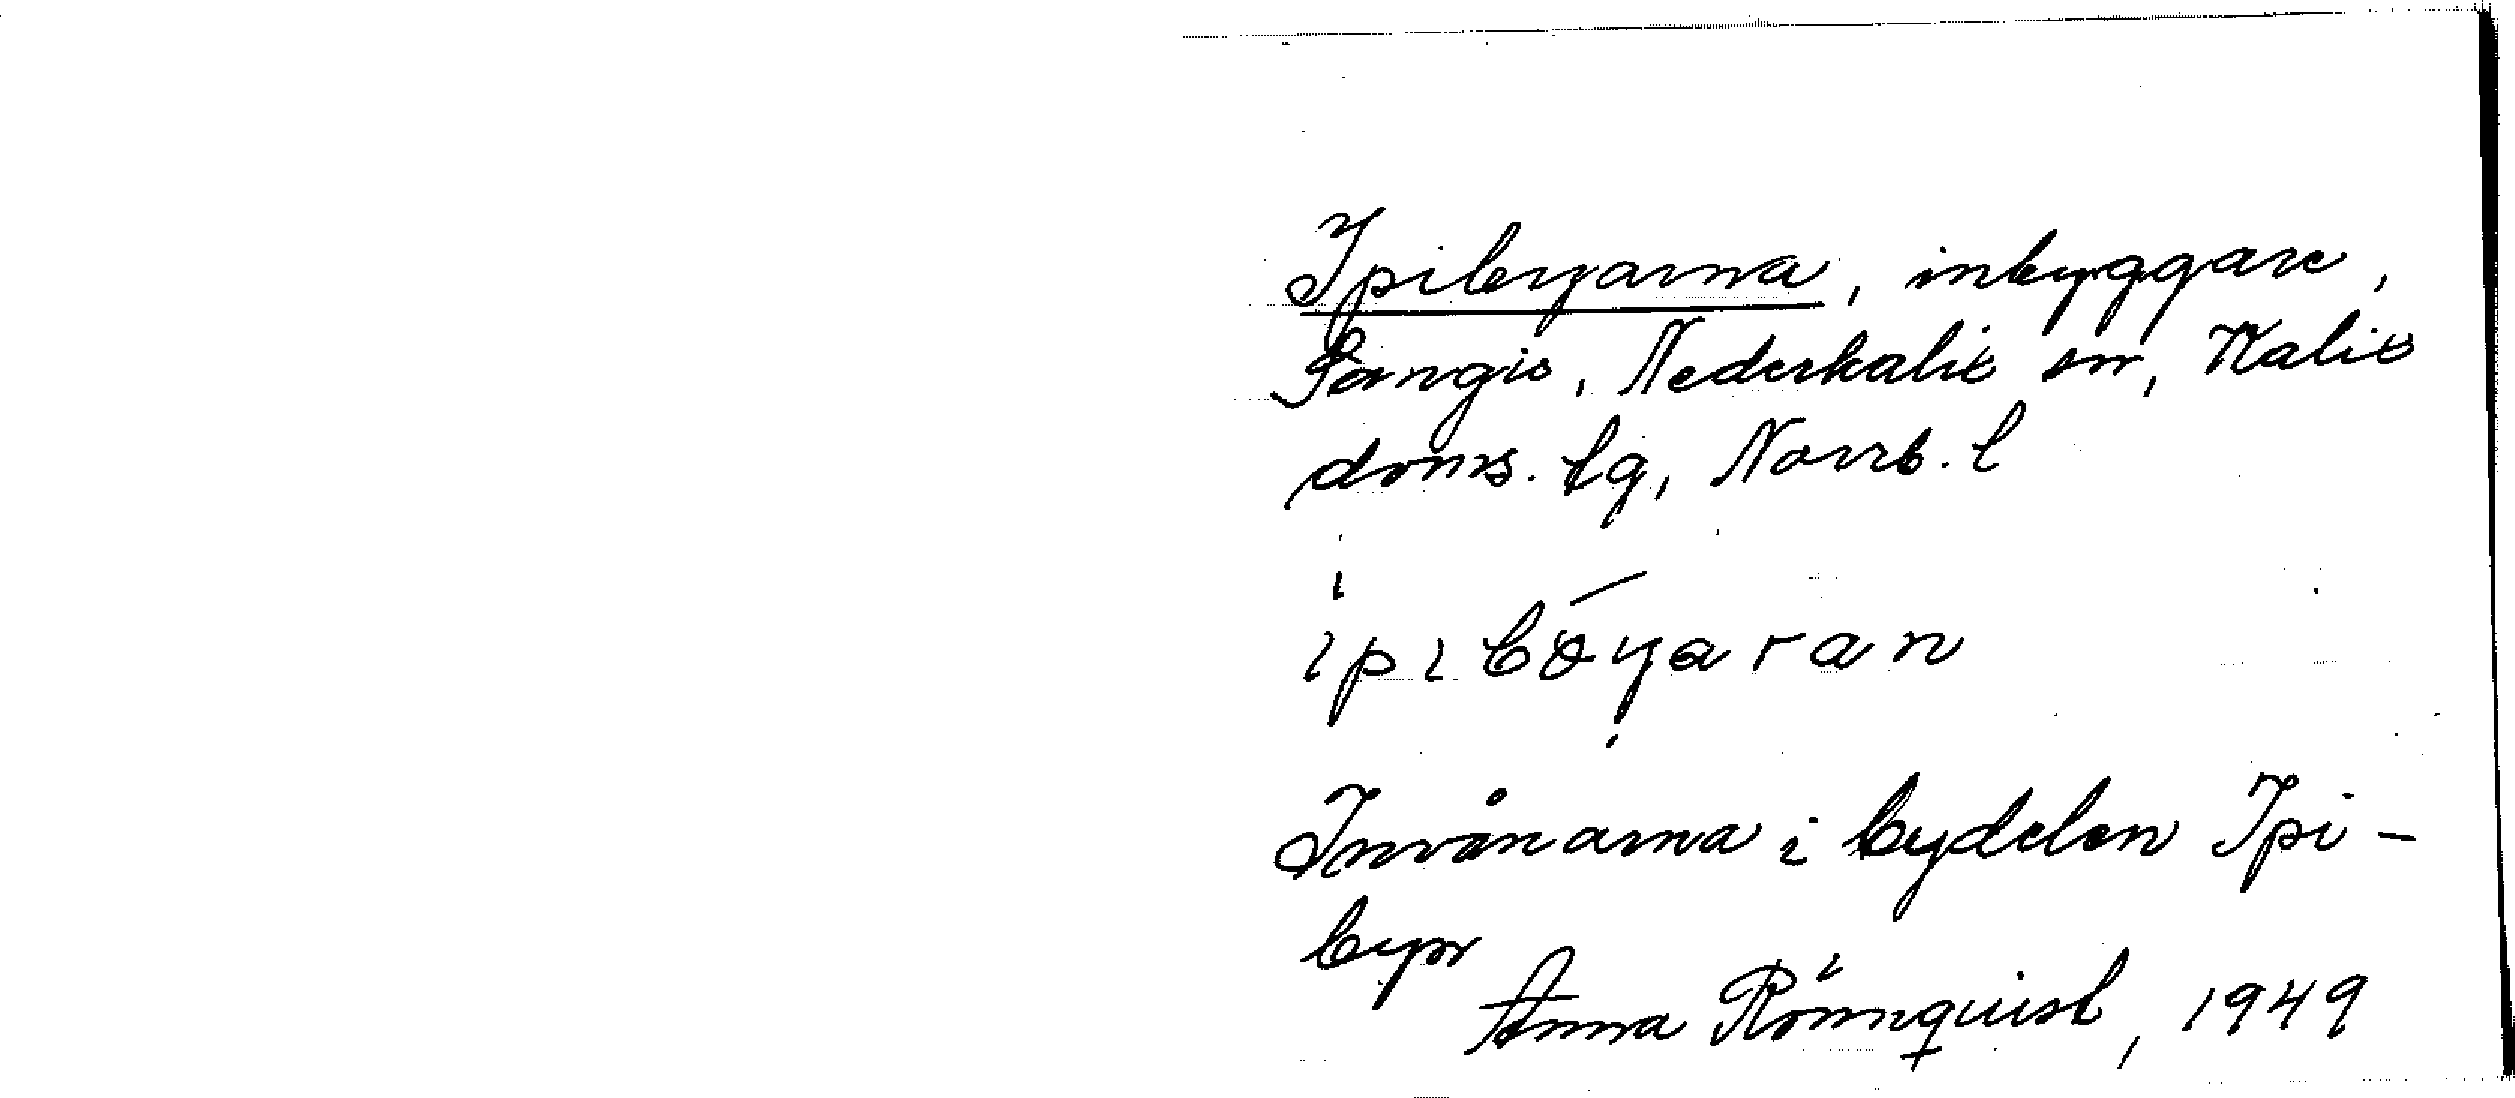 Ipibyarna, inbyggare,
Sangis, Nederkalix sn, Kalix
doms. lg, Norrb. l
Invånarna i bydelen Ipi-
byn
Anna Rönnqvist, 1949